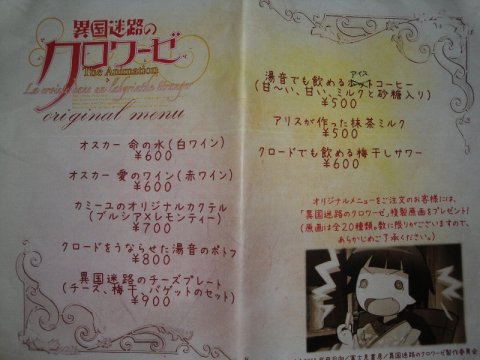 異国迷路の
クロワーゼ
The Animation
La croisée dans un labyrinthe étranger
original menu
オスカー 命の水(白ワイン)
¥600
オスカー 愛のワイン(赤ワイン)
¥600
カミーユのオリジナルカクテル
(プルシア×レモンティー)
¥700
クロードをうならせた湯音のポトフ
¥800
異国迷路のチーズプレート
(チーズ、梅干、バゲットのセット)
¥900
アイス
湯音でも飲めるホットコーヒー
(甘〜い、甘い、ミルクと砂糖入り)
¥500
アリスが作った抹茶ミルク
¥500
クロードでも飲める梅干しサワー
¥600
オリジナルメニューをご注文のお客様には、
「異国迷路のクロワーゼ」複製原画をプレゼント!
(原画は全20種類。数に限りがございますので、
あらかじめご了承ください。)
富士見書房/異国迷路のクロワーゼ製作委員会